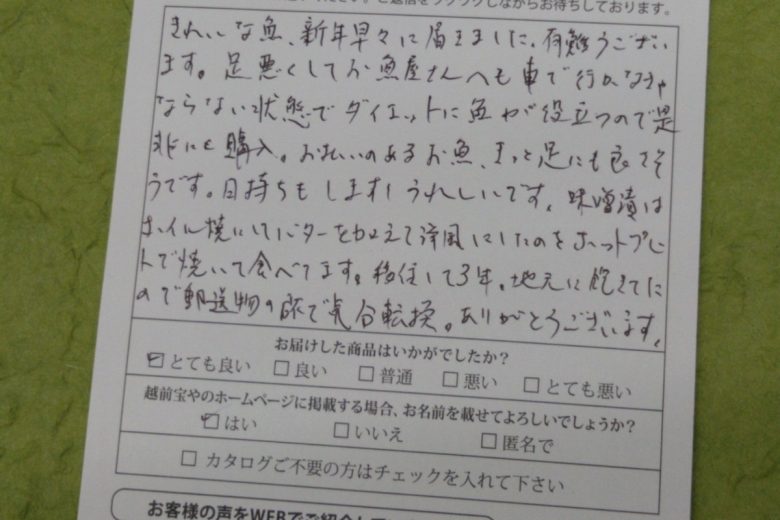 ご返信をワクワクしながらお待ちしております。
きれいな魚、新年早々に届きました。有難うござい
ます。足悪くしてお魚屋さんへも車で行かなきゃ
ならない状態でダイエットに魚が役立つので是
非にと購入。お払いのあるお魚、きっと足にも良さそ
うです。日持ちもしますしうれしいです。味噌漬は
ホイル焼にしてバターを加えて洋風にしたのをホットプレー
トで焼いて食べてます。移住して3年。地元に飽きてた
ので郵送物の旅で気分転換。ありがとうございます。
お届けした商品はいかがでしたか?
とても良い 良い 普通 悪い とても悪い
越前宝やのホームページに掲載する場合、お名前を載せてよろしいでしょうか?
はい いいえ 匿名で
カタログご不要の方はチェックを入れて下さい
お客様の声をWEBでご紹介して